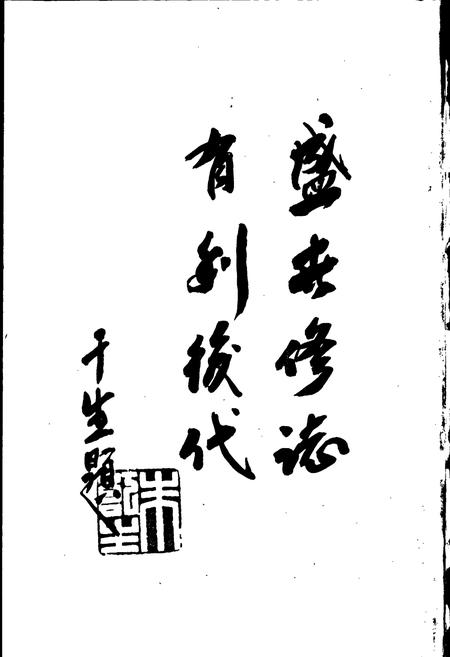 盛世修誌
有利後代
千生題